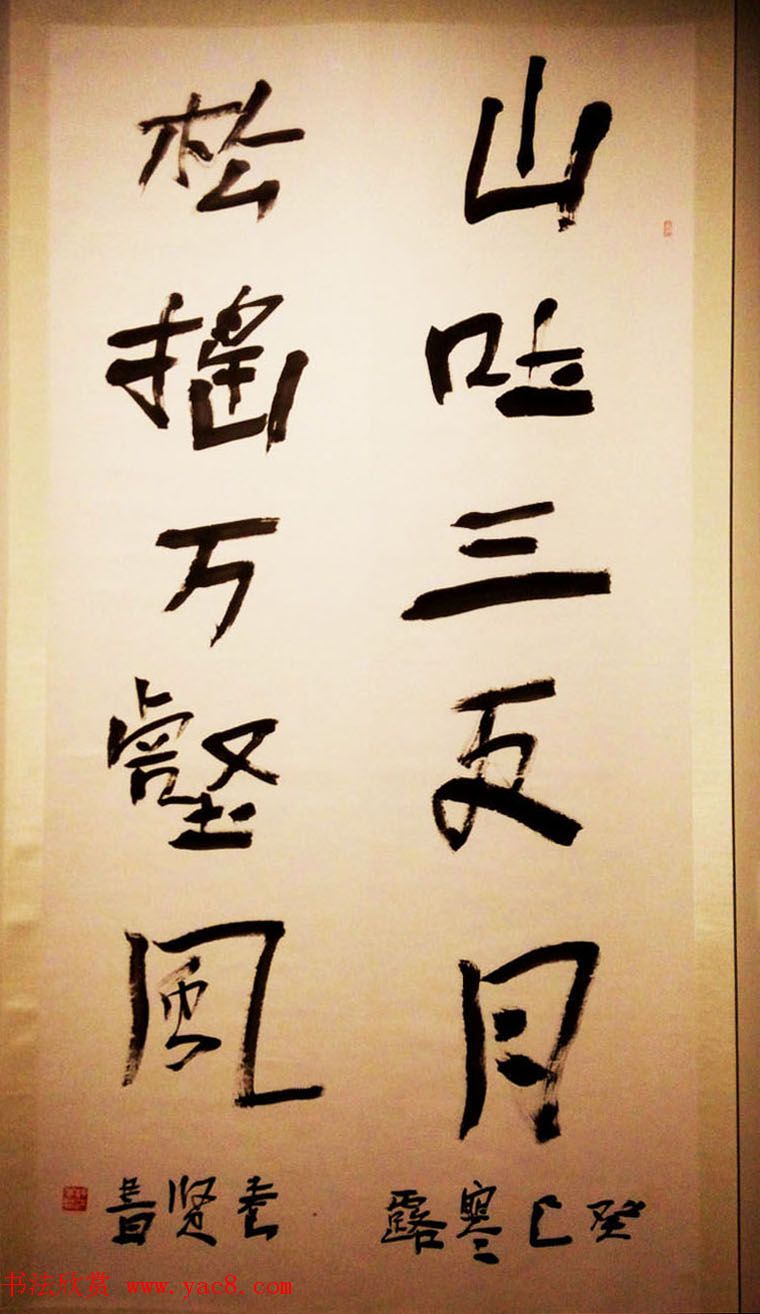 山吐三更月
松搖万壑風
癸巳寒露
贤書
书法欣赏 www.yac8.com